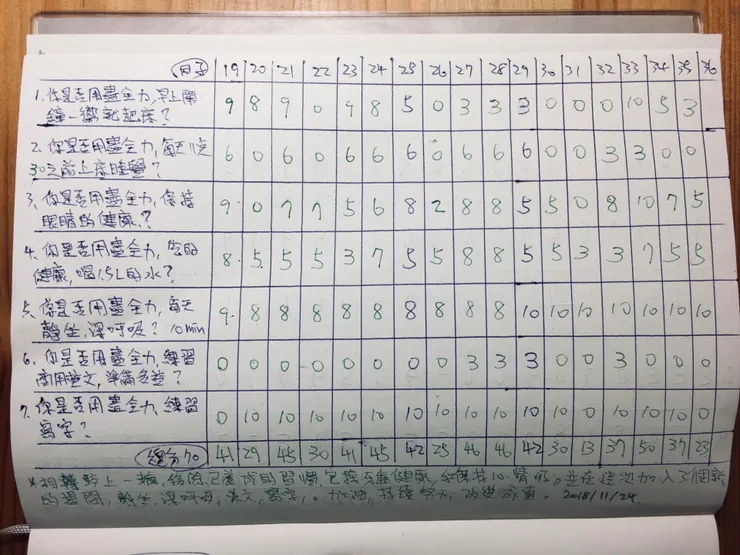 日子 19 20 21 22 23 24 25 26 27 28 29 30 31 32 33 34 35 36
1. 你是否用盡全力,早上鬧
鐘一響就起床? 9 8 9 0 9 8 5 0 3 3 3 0 0 0 10 5 3
2. 你是否用盡全力,每天晚
30之前上床睡覺? 6 0 6 0 6 6 6 0 6 6 6 0 0 3 3 0 0
3. 你是否用盡全力,保持
眼睛的健康? 9 0 7 7 5 6 8 2 8 8 5 5 0 8 10 7 5
4. 你是否用盡全力,
健康,喝1.5L的水? 8 5 5 5 3 7 5 5 8 8 5 5 3 3 7 5 5
5. 你是否用盡全力,每天
靜坐,深呼吸? 10min 9 8 8 8 8 8 8 8 8 8 10 10 10 10 10 10 10
6. 你是否用盡全力,練習
商用英文,單篇多益? 0 0 0 0 0 0 0 0 3 3 3 0 0 3 0 0 0
7. 你是否用盡全力,練習
寫字? 0 10 10 10 10 10 10 10 10 10 10 10 0 10 10 10 0
總分70 41 29 45 30 41 45 42 25 46 46 42 30 13 37 50 37 23
*相較於上一輪,已達成的習慣,包括 健康, 保持心情好。並在這次加入了個新
的提問,靜坐,深呼吸,英文,寫字,。加油,持續努力,改變 。2018/11/24.